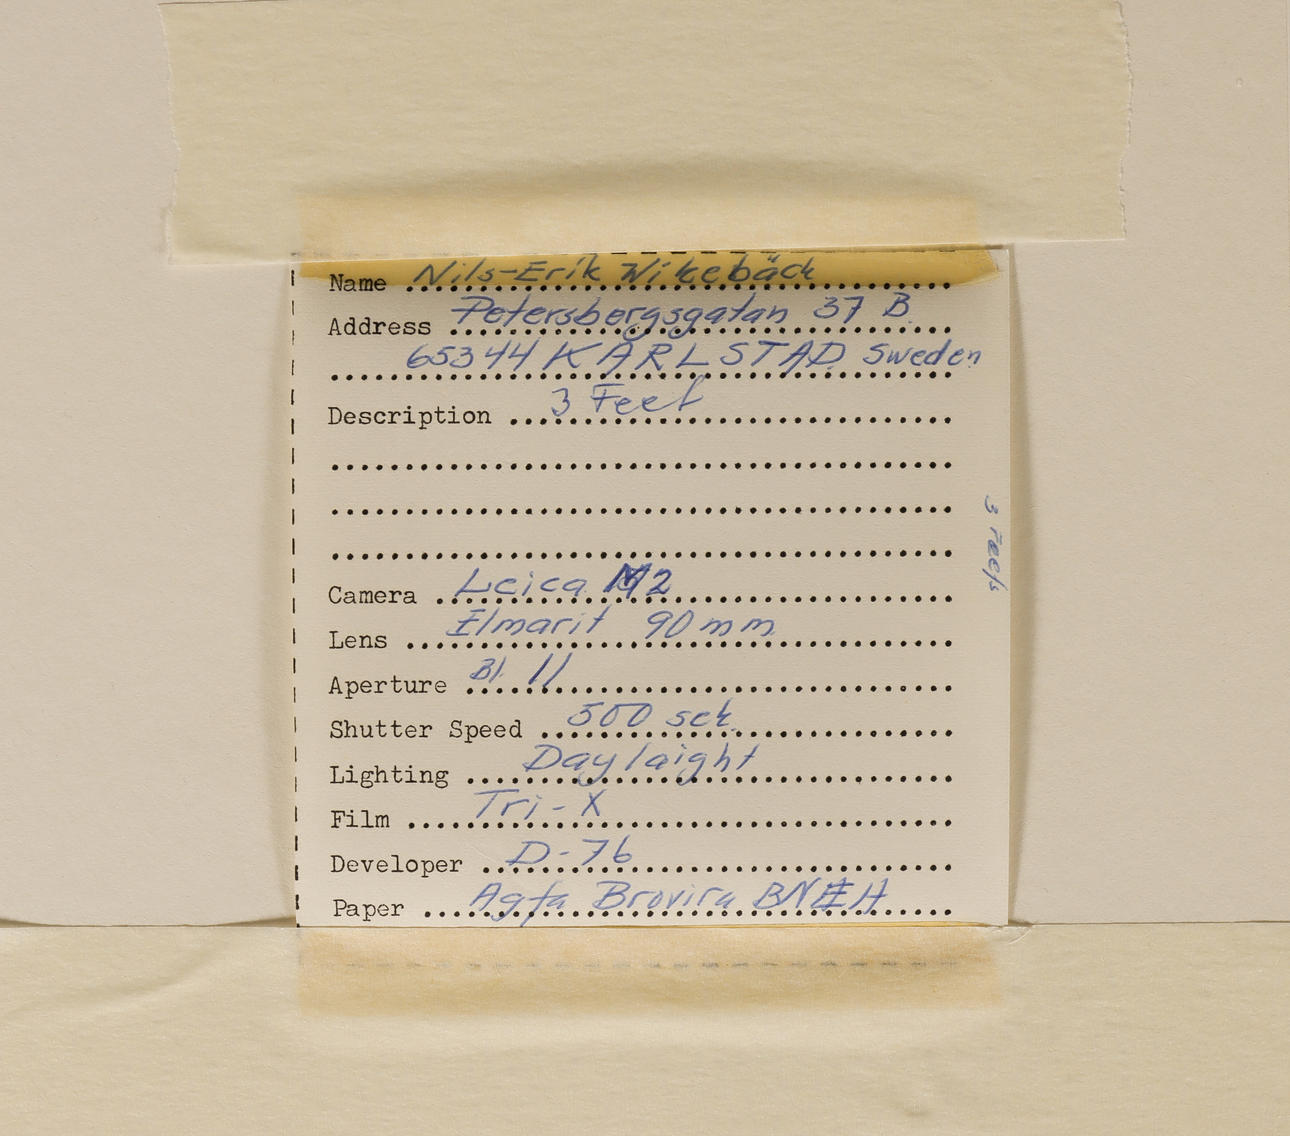 Name Nils-Erik Wikebäck
Address Petersbergsgatan 37 B.
65344 KARLSTAD Sweden
Description 3 Feet
Camera Leica M2
Lens Elmarit 90 mm
Aperture Bl. 11
Shutter Speed 500 sek.
Lighting Daylaight
Film Tri-X
Developer D-76
Paper Agfa Brovira BN H
3 Feets